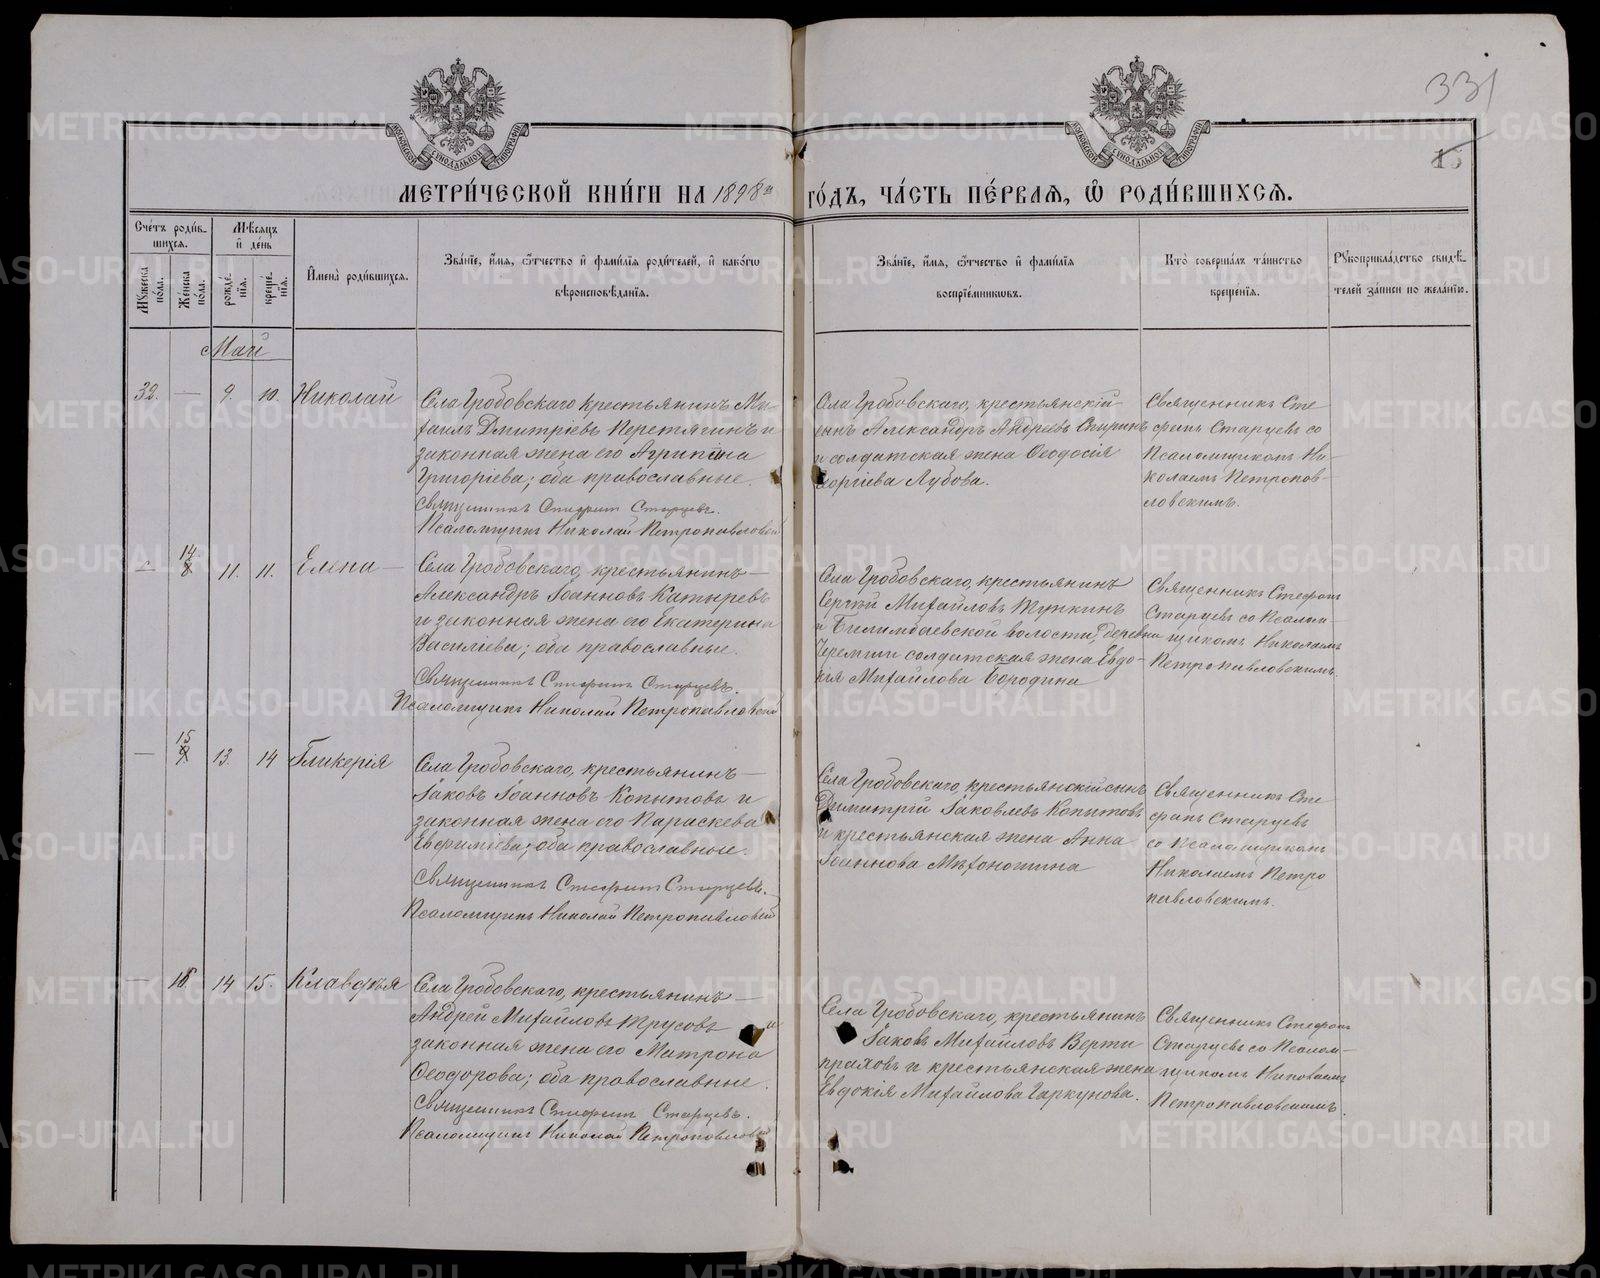 331
15
МОСКОВСКОЙ СѴНОДАЛЬНОЙ ТИПОГРАФІИ
МОСКОВСКОЙ СѴНОДАЛЬНОЙ ТИПОГРАФІИ
МЕТРИ́ЧЕСКОЙ КНИ́ГИ НА 1898й ГО́ДЪ, ЧА́СТЬ ПЕ́РВАЯ, Ѽ РОДИ́ВШИХСЯ.
Счетъ роди́в-
шихся.
Мѣсяцъ
и҆ де́нь
Мꙋжеска по́ла.
Же́нска по́ла.
рожде́нїя.
креще́нїя.
И҆мена̀ роди́вшихся.
Зва́нїе, и҆́мя, ѻ҆́тчество и҆ фами́лїя роди́телей, и҆ како́гѡ
вѣроисповѣ́данїя.
Зва́нїе, и҆́мя, ѻ҆́тчество и҆ фами́лїя
воспрїе́мникѡвъ.
Кто̀ соверша́лъ та́инство
креще́нїя.
Рꙋкоприкла́дство свидѣ́-
телей за́писи по жела́нїю.
Май
32. — 9. 10. Николай
Села Гробовскаго крестьянинъ Ми-
хаилъ Дмитріевъ Перетягинъ и
законная жена его Агрипина
Григоріева; оба православные.
Священникъ Стефанъ Старцевъ.
Псаломщикъ Николай Петропавловскій
Села Гробовскаго, крестьянскій
сынъ Александръ Андреевъ Спиринъ
и солдатская жена Ѳеодосія
Георгіева Лубова.
Священникъ Сте
фанъ Старцевъ со
Псаломщикомъ Ни-
колаемъ Петропав-
ловскимъ.
— 14 11. 11. Елена —
Села Гробовскаго, крестьянинъ —
Александръ Іоанновъ Катыревъ
и законная жена его Екатерина
Василіева; оба православные.
Священникъ Стефанъ Старцевъ.
Псаломщикъ Николай Петропавловскій
Села Гробовскаго, крестьянинъ
Сергій Михайловъ Тункинъ
и Билимбаевской волости, деревни
Черемши солдатская жена Евдо-
кія Михайлова Бородина
Священникъ Стефанъ
Старцевъ со Псалом-
щикомъ Николаемъ
Петропавловскимъ.
— 15 13. 14 Гликерія
Села Гробовскаго, крестьянинъ —
Іаковъ Іоанновъ Копытовъ и
законная жена его Параскева
Евфиміева; оба православные.
Священникъ Стефанъ Старцевъ.
Псаломщикъ Николай Петропавловскій
Села Гробовскаго, крестьянскій сынъ
Димитрій Іаковлевъ Копытовъ
и крестьянская жена Анна
Іоаннова Мѣхоношина
Священникъ Сте
фанъ Старцевъ
со Псаломщикомъ
Николаемъ Петро
павловскимъ.
— 16. 14 15. Клавдія
Села Гробовскаго, крестьянинъ —
Андрей Михайловъ Трусовъ и
законная жена его Матрона
Ѳеодорова; оба православные.
Священникъ Стефанъ Старцевъ.
Псаломщикъ Николай Петропавловскій
Села Гробовскаго, крестьянинъ
Іаковъ Михайловъ Верти
праховъ и крестьянская жена
Евдокія Михайлова Гаркунова.
Священникъ Стефанъ
Старцевъ со Псалом-
щикомъ Николаемъ
Петропавловскимъ.
METRIKI.GASO-URAL.RU